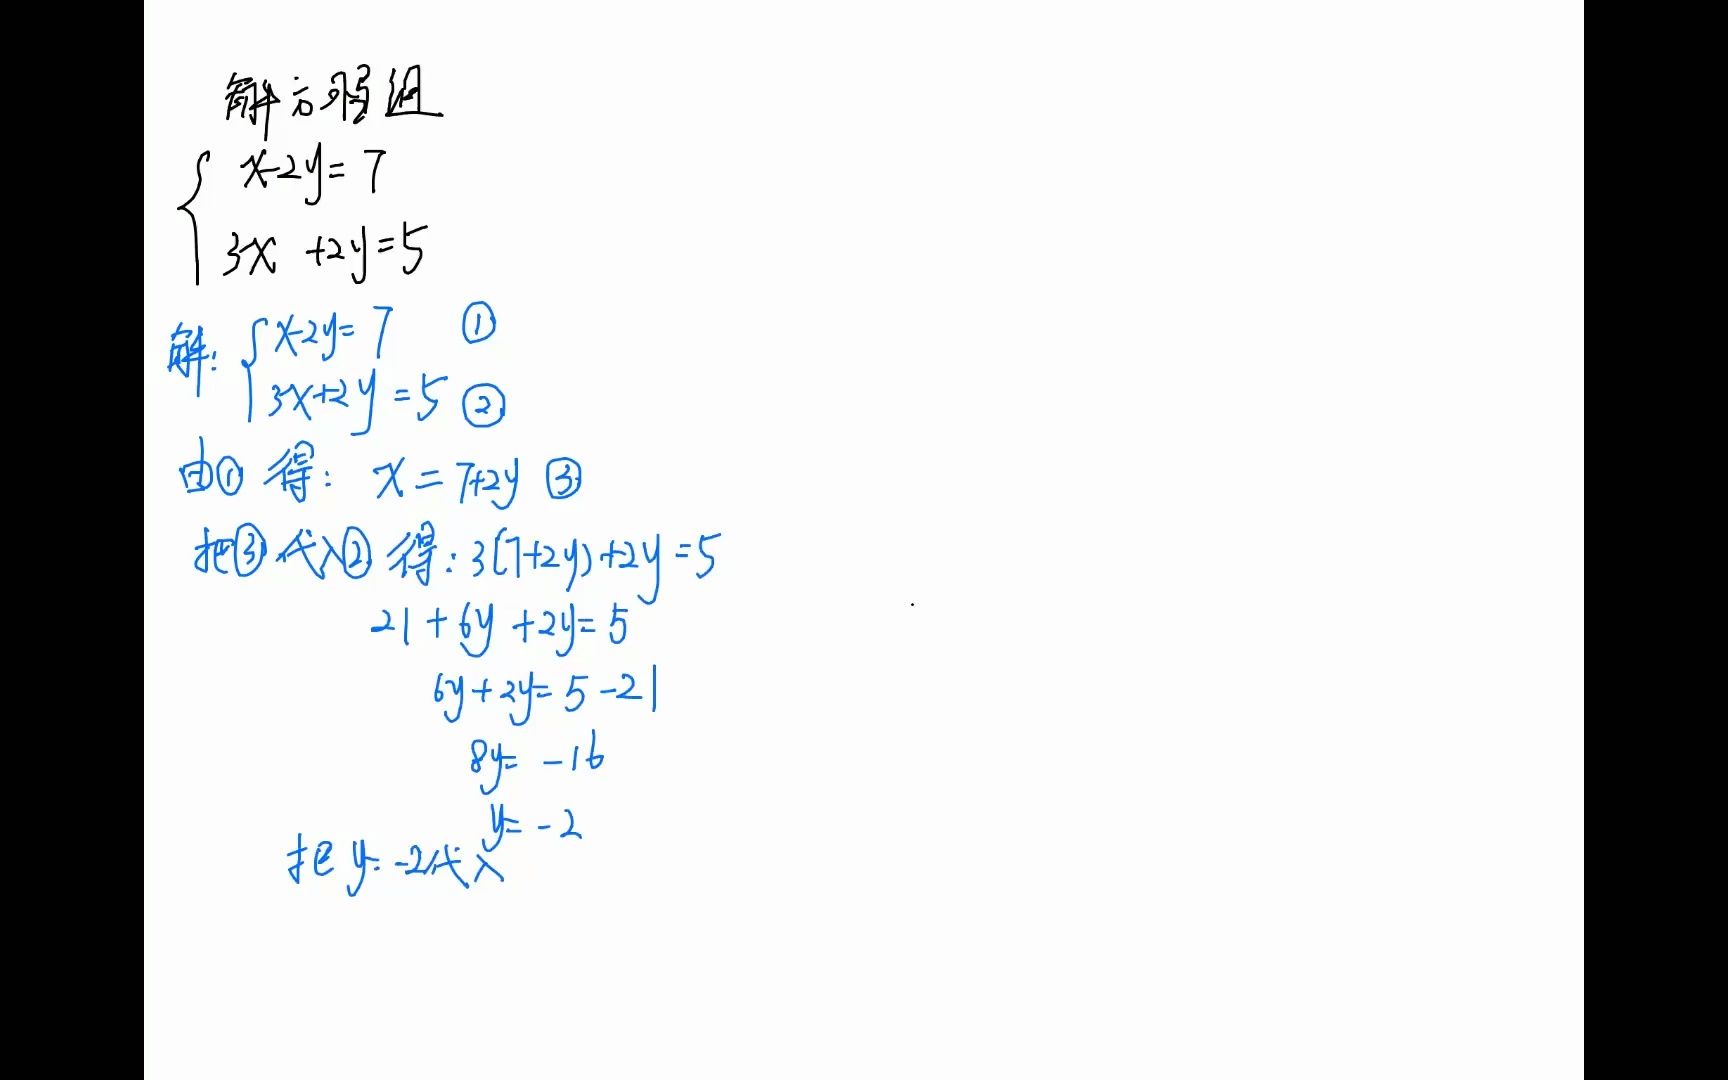 解方程组
x-2y=7
3x+2y=5
解: x-2y=7 ①
3x+2y=5 ②
由① 得: x=7+2y ③
把③代入② 得: 3(7+2y)+2y=5
21+6y+2y=5
6y+2y=5-21
8y=-16
y=-2
把y=-2代入